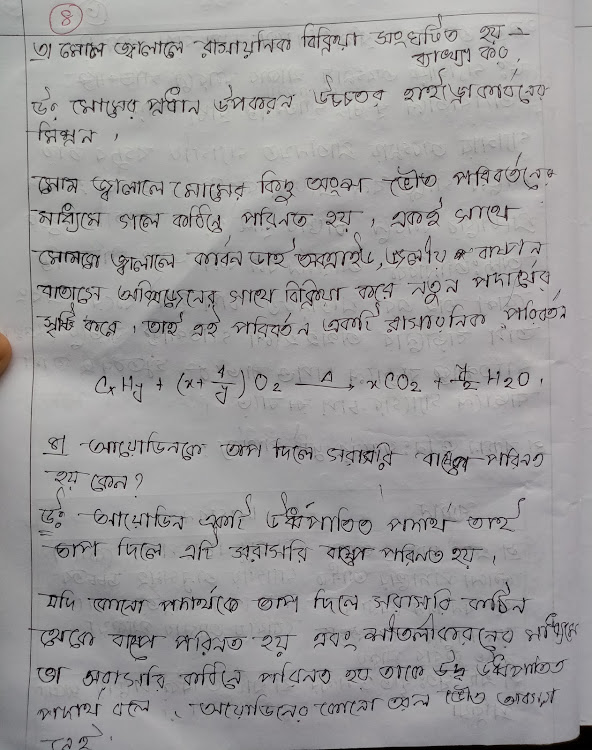 ৪
৩। মোম জ্বালালে রাসায়নিক বিক্রিয়া সংঘটিত হয় –
ব্যাখ্যা কর।
উঃ মোমের প্রধান উপকরন উচ্চতর হাইড্রোকার্বনের
মিশ্রন।
মোম জ্বালালে মোমের কিছু অংশ ভৌত পরিবর্তনের
মাধ্যিমে গলে কঠিনে পরিনত হয়। একই সাথে
মোমটা জ্বালালে কার্বন ডাই অক্সাইড, জলীয় বাষ্প
বাতাসে অক্সিজেনের সাথে বিক্রিয়া করে নতুন পদার্থের
সৃষ্টি করে। তাই এই পরিবর্তন একটি রাসায়নিক পরিবর্তন
CxHy + (x+4/y) O2 —Δ→ xCO2 + y/2 H2O.
৪। আয়োডিনকে তাপ দিলে সরাসরি বাষ্পে পরিনত
হয় কেন?
উঃ আয়োডিন একটি উর্ধ্বপাতিত পদার্থ তাই
তাপ দিলে এটি সরাসরি বাষ্পে পরিনত হয়।
যদি কোনো পদার্থকে তাপ দিলে সরাসরি কঠিন
থেকে বাষ্পে পরিনত হয় এবং শীতলীকরনের মাধ্যিমে
তা সরাসরি কঠিনে পরিনত হয় তাকে উর্ধ্বপাতিত
পদার্থ বলে। আয়োডিনের কোনো তরল ভৌত অবস্থা
নেই।